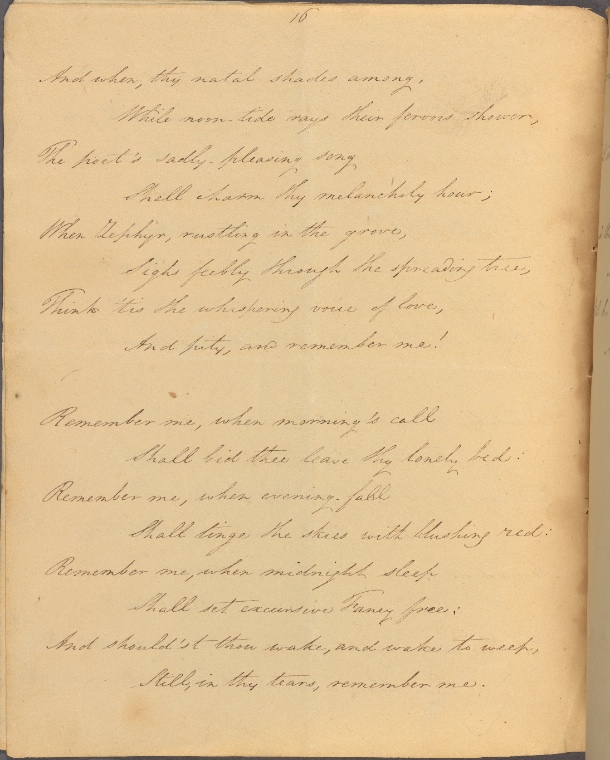 16
And when, thy natal shades among,
While noon-tide rays their fervors shower,
The poet's sadly-pleasing song
Shall charm thy melancholy hour;
When Zephyr, rustling in the grove,
Sighs feebly through the spreading tree,
Think 'tis the whispering voice of love,
And pity, and remember me!
Remember me, when morning's call
Shall bid thee leave thy lonely bed:
Remember me, when evening-fall
Shall tinge the skies with blushing red:
Remember me, when midnight sleep
Shall set excursive Fancy free:
And should'st thou wake, and wake to weep,
Still, in thy tears, remember me.